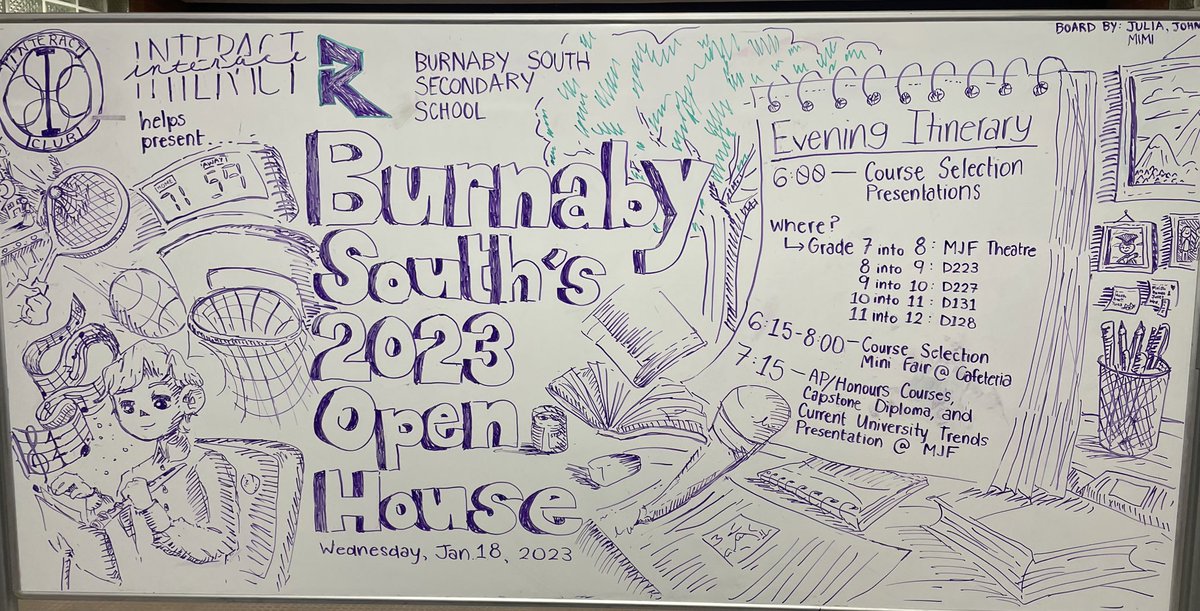 INTERACT
CLUB
INTERACT
interact
helps
present
BURNABY SOUTH
SECONDARY
SCHOOL
BOARD BY: JULIA, JOHN
MIMI
HOME
AWAY
Burnaby
South's
2023
Open
House
Wednesday, Jan. 18, 2023
Evening Itinerary
6:00 — Course Selection
Presentations
Where?
↳ Grade 7 into 8: MJF Theatre
8 into 9: D223
9 into 10: D227
10 into 11: D131
11 into 12: D128
6:15-8:00 — Course Selection
Mini Fair @ Cafeteria
7:15 — AP/Honours Courses,
Capstone Diploma, and
Current University Trends
Presentation @ MJF